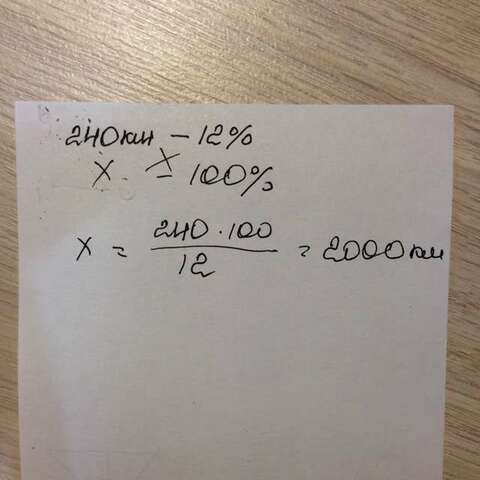 240 км – 12%
x – 100%
x = 240 · 100 / 12 = 2000 км